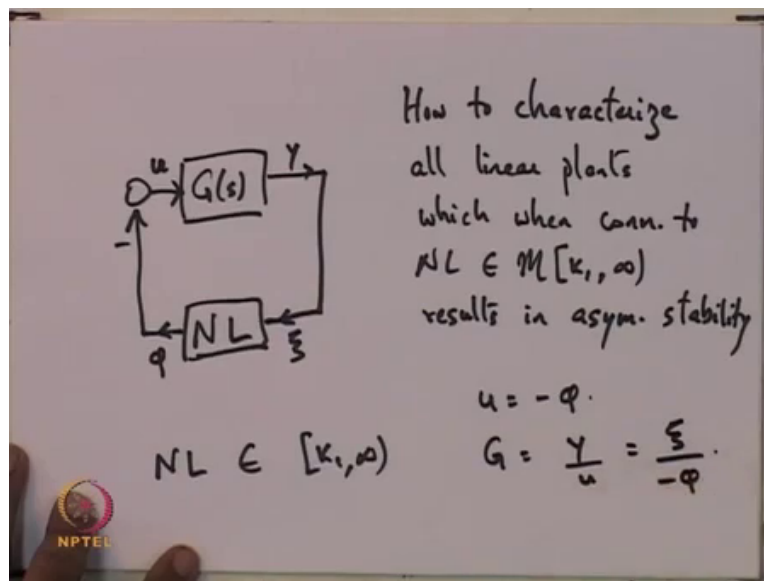 How to characterize
all linear plants
which when conn. to
NL ∈ M[K₁,∞)
results in asym. stability
u
G(s)
y
-
NL
φ
ξ
u = -φ.
NL ∈ [K₁,∞)
G = y/u = ξ/-φ.
NPTEL